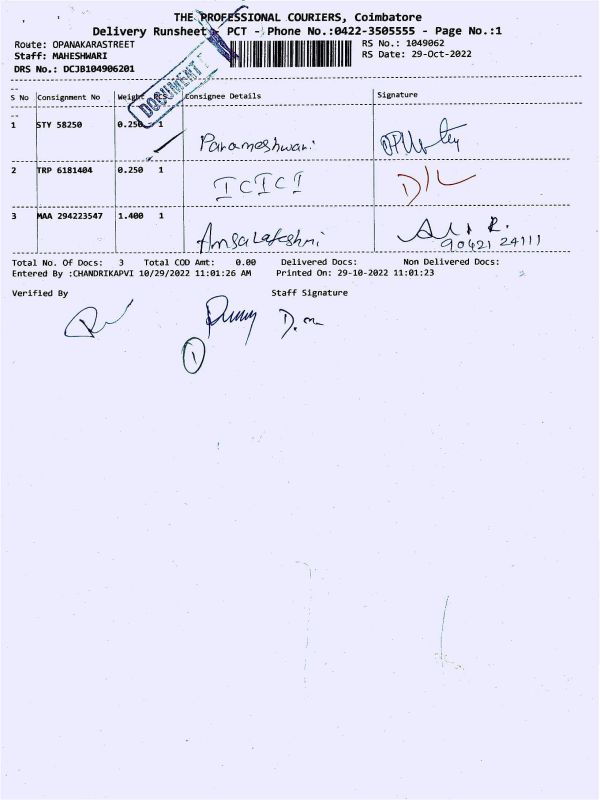 THE PROFESSIONAL COURIERS, Coimbatore
Delivery Runsheet - PCT - Phone No.:0422-3505555 - Page No.:1
Route: OPANAKARASTREET RS No.: 1049062
Staff: MAHESHWARI RS Date: 29-Oct-2022
DRS No.: DCJB104906201
DOCUMENT
S No Consignment No Weight PCS Consignee Details Signature
1 STY 58250 0.250 1 Parameshwari
2 TRP 6181404 0.250 1 ICICI D/L
3 MAA 294223547 1.400 1
90421 24111
Total No. Of Docs: 3 Total COD Amt: 0.00 Delivered Docs: Non Delivered Docs:
Entered By :CHANDRIKAPVI 10/29/2022 11:01:26 AM Printed On: 29-10-2022 11:01:23
Verified By Staff Signature
1